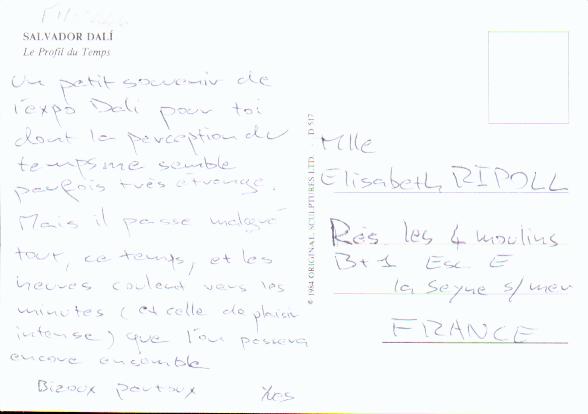 SALVADOR DALÍ
Le Profil du Temps
Un petit souvenir de
l'expo Dali pour toi
dont la perception du
temps me semble
parfois très étrange.
Mais il passe malgré
tout, ce temps, et les
heures coulent vers les
minutes (et celle de plaisir
intense) que l'on passera
encore ensemble
Bizoux partoux
Yves
© 1984 ORIGINAL SCULPTURES LTD. - D 517
Mlle
Elisabeth RIPOLL
Rés les 4 moulins
Bt 1 Esc E
la Seyne s/mer
FRANCE